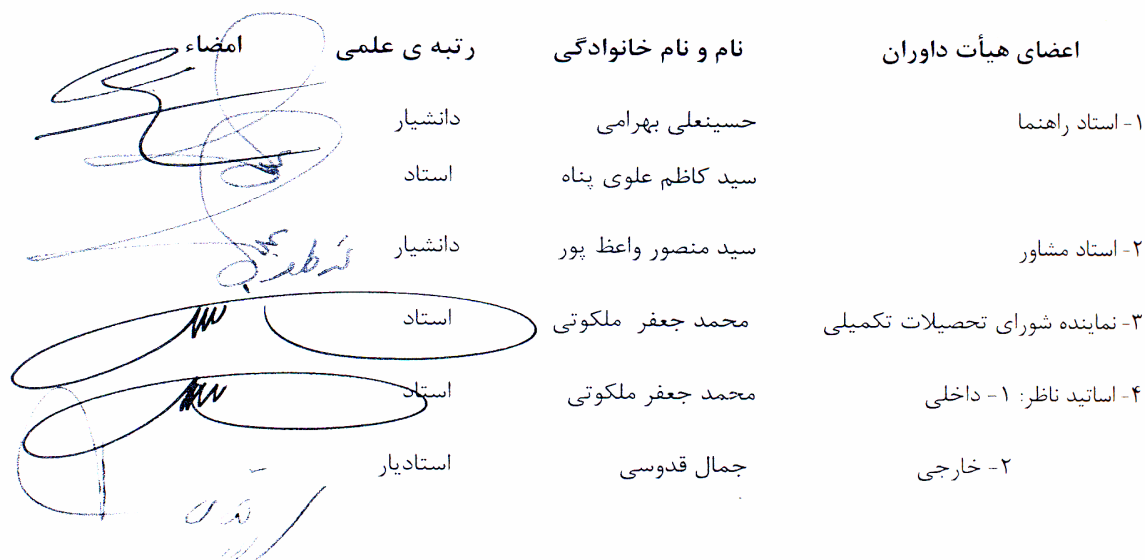 اعضای هیأت داوران نام و نام خانوادگی رتبه ی علمی امضاء
۱- استاد راهنما حسینعلی بهرامی دانشیار
سید کاظم علوی پناه استاد
۲- استاد مشاور سید منصور واعظ پور دانشیار
۳- نماینده شورای تحصیلات تکمیلی محمد جعفر ملکوتی استاد
۴- اساتید ناظر: ۱- داخلی محمد جعفر ملکوتی استاد
۲- خارجی جمال قدوسی استادیار